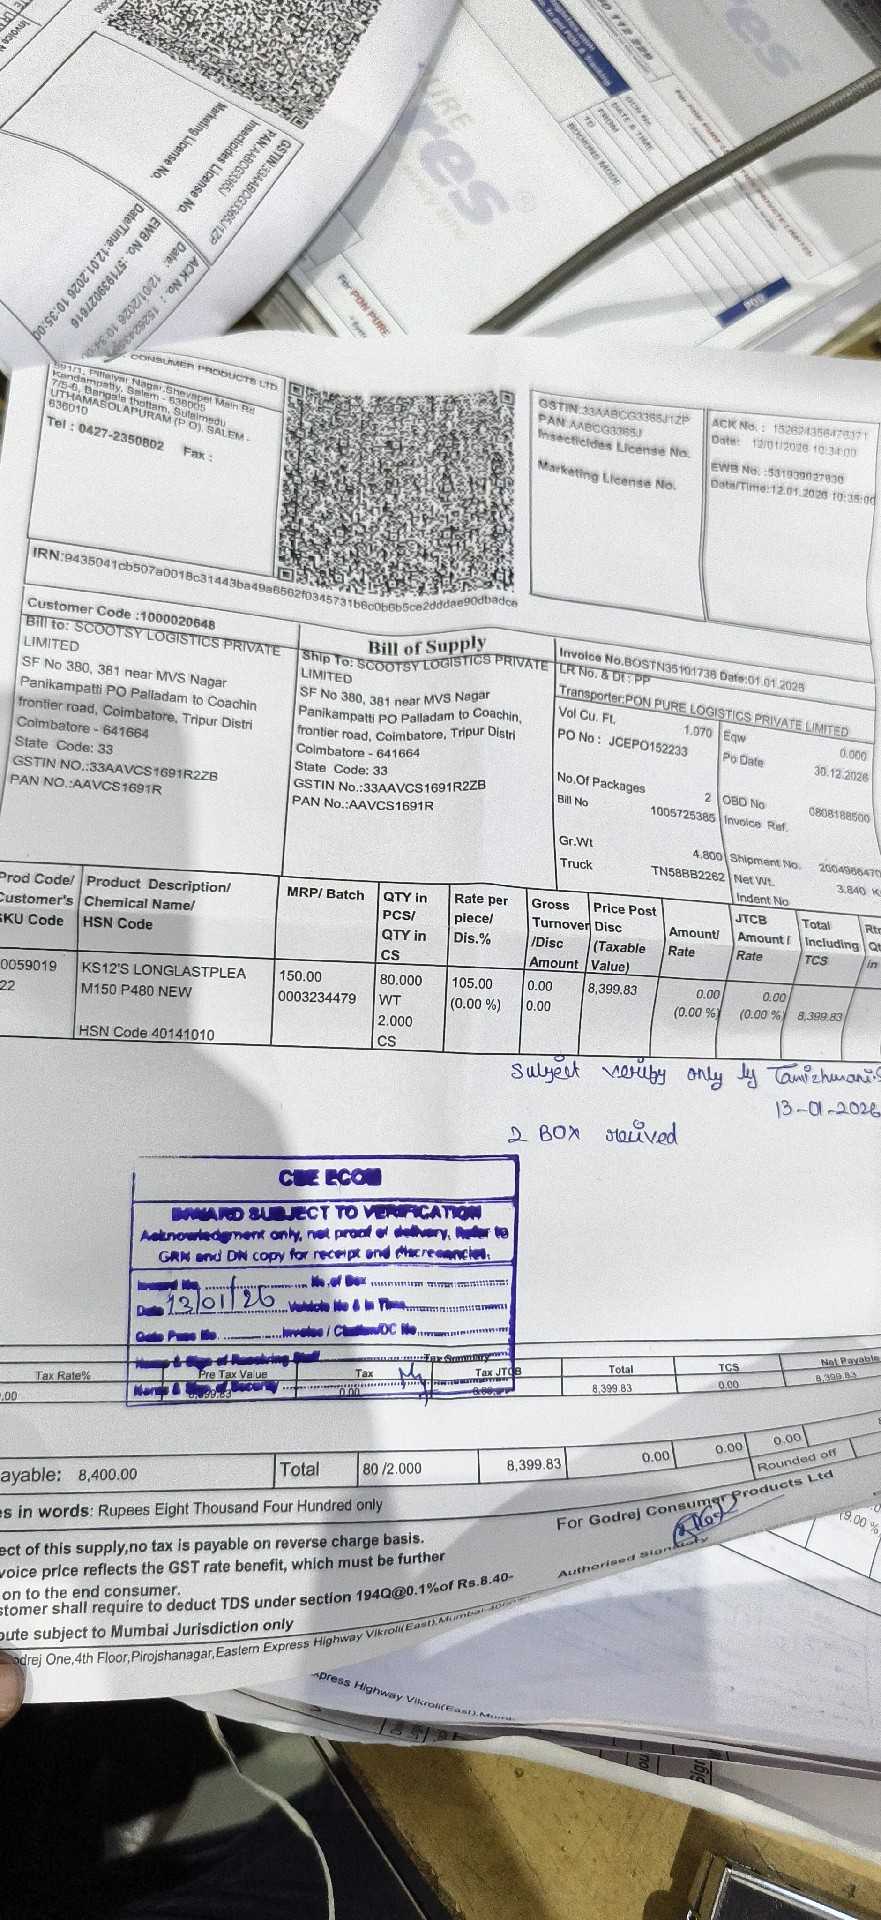 GSTIN:33AABCG3365J1ZP
PAN:AABCG3365J
Insecticides License No.
Marketing License No.
Date: 12/01/2026
EWB No. :571939027616
Date/Time:12.01.2026 10:35:00
CONSUMER PRODUCTS LTD
591/1, Pillaiyar Nagar,Shevapet Main Rd
Kandampatty, Salem - 636005
7/5-6, Bangala thottam, Sulaimedu
UTHAMASOLAPURAM (P O), SALEM -
636010
Tel : 0427-2350802 Fax :
GSTIN:33AABCG3365J1ZP
PAN:AABCG3365J
Insecticides License No.
Marketing License No.
ACK No. : 152624356476371
Date: 12/01/2026 10:34:00
EWB No. :531939027630
Date/Time:12.01.2026 10:35:00
IRN:9435041cb507a0018c31443ba49a6562f0345731b6c0b6b5ce2dddae90dbadce
Customer Code :1000020648
Bill to: SCOOTSY LOGISTICS PRIVATE
LIMITED
SF No 380, 381 near MVS Nagar
Panikampatti PO Palladam to Coachin
frontier road, Coimbatore, Tripur Distri
Coimbatore - 641664
State Code: 33
GSTIN NO.:33AAVCS1691R2ZB
PAN NO.:AAVCS1691R
Bill of Supply
Ship To: SCOOTSY LOGISTICS PRIVATE
LIMITED
SF No 380, 381 near MVS Nagar
Panikampatti PO Palladam to Coachin,
frontier road, Coimbatore, Tripur Distri
Coimbatore - 641664
State Code: 33
GSTIN No.:33AAVCS1691R2ZB
PAN No.:AAVCS1691R
Invoice No.BOSTN35101738 Date:01.01.2026
LR No. & Dt : PP
Transporter:PON PURE LOGISTICS PRIVATE LIMITED
Vol Cu. Ft. 1.070 Eqw 0.000
PO No : JCEPO152233 Po Date 30.12.2026
No.Of Packages 2 OBD No 0808188500
Bill No 1005725385 Invoice Ref.
Gr.Wt 4.800 Shipment No. 2004966470
Truck TN58BB2262 Net Wt. 3.840 K
Indent No
Prod Code/ Product Description/ MRP/ Batch QTY in Rate per Gross Price Post Amount/ JTCB Total
Customer's Chemical Name/ PCS/ piece/ Turnover Disc Rate Amount / Including
SKU Code HSN Code QTY in CS Dis.% /Disc Amount (Taxable Value) Rate TCS
0059019 KS12'S LONGLASTPLEA 150.00 80.000 105.00 0.00 8,399.83 0.00 0.00 8,399.83
22 M150 P480 NEW 0003234479 WT (0.00 %) 0.00 (0.00 %) (0.00 %)
2.000
HSN Code 40141010 CS
Subject verify only by Tamizhmani.S
13-01-2026
2 BOX reuived
CBE ECOM
INWARD SUBJECT TO VERIFICATION
Acknowledgment only, not proof of delivery, Refer to
GRN and DN copy for receipt and discrepancies.
Inward No. No. of Box
Date 13/01/26 Vehicle No & In Time
Gate Pass No. Invoice / Challan/DC No
Name & Sign of Receiving Staff
Name & Sign of Security
Tax Summary
Tax Rate% Pre Tax Value Tax Tax JTCB Total TCS Net Payable
.00 8,399.83 0.00 8,399.83 0.00 8,399.83
ayable: 8,400.00 Total 80 /2.000 8,399.83 0.00 0.00 0.00
Rounded off
es in words: Rupees Eight Thousand Four Hundred only
For Godrej Consumer Products Ltd
ect of this supply,no tax is payable on reverse charge basis.
voice price reflects the GST rate benefit, which must be further
on to the end consumer.
Authorised Signatory
stomer shall require to deduct TDS under section 194Q@0.1%of Rs.8.40-
pute subject to Mumbai Jurisdiction only
odrej One,4th Floor,Pirojshanagar,Eastern Express Highway Vikroli(East),Mumbai
xpress Highway Vikroli(East),Mum
(9.00 %